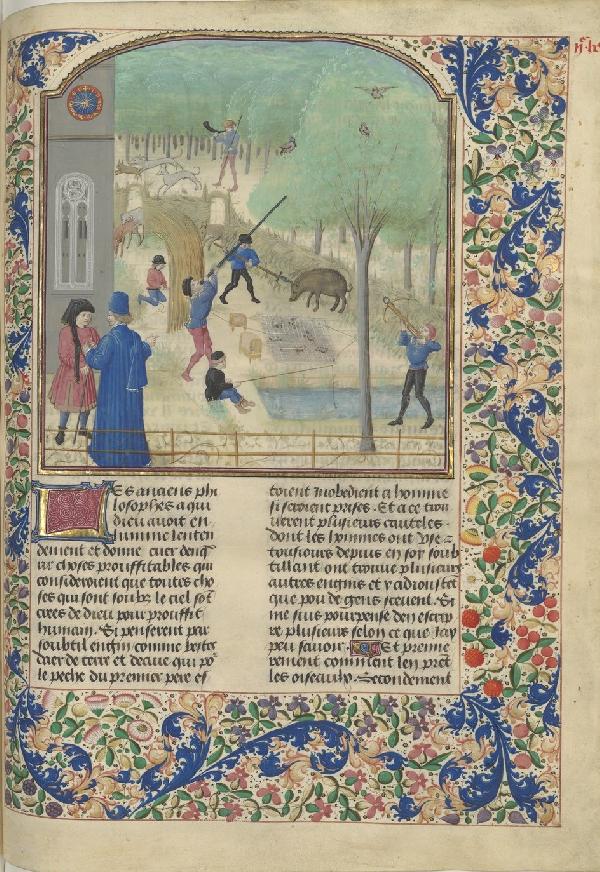 Es anciens phi
losophes a qui
dieu auoit en
lumine lenten
dement et donne cuer denq̄
rir choses prouffitables qui
consideroient que toutes cho
ses qui sont soubz le ciel sōt
crees de dieu pour prouffit
humain. Si penserent par
soubtil engin comme bestes
de terre et deaue qui p̄
le peche du premier pere es
toient inobedient a homme
si seroient prises. Et a ce trou
uerent plusieurs cauteles
dont les hommes ont vse
tousiours depuis en soy soub
tillant ont trouue plusieurs
autres engins et y adioustēt
que pou de gens sceuent. Si
me suis pourpense den escrip
re plusieurs selon ce que iay
peu sauoir. Et premie
rement comment len prēt
les oiseaulx. Secondement